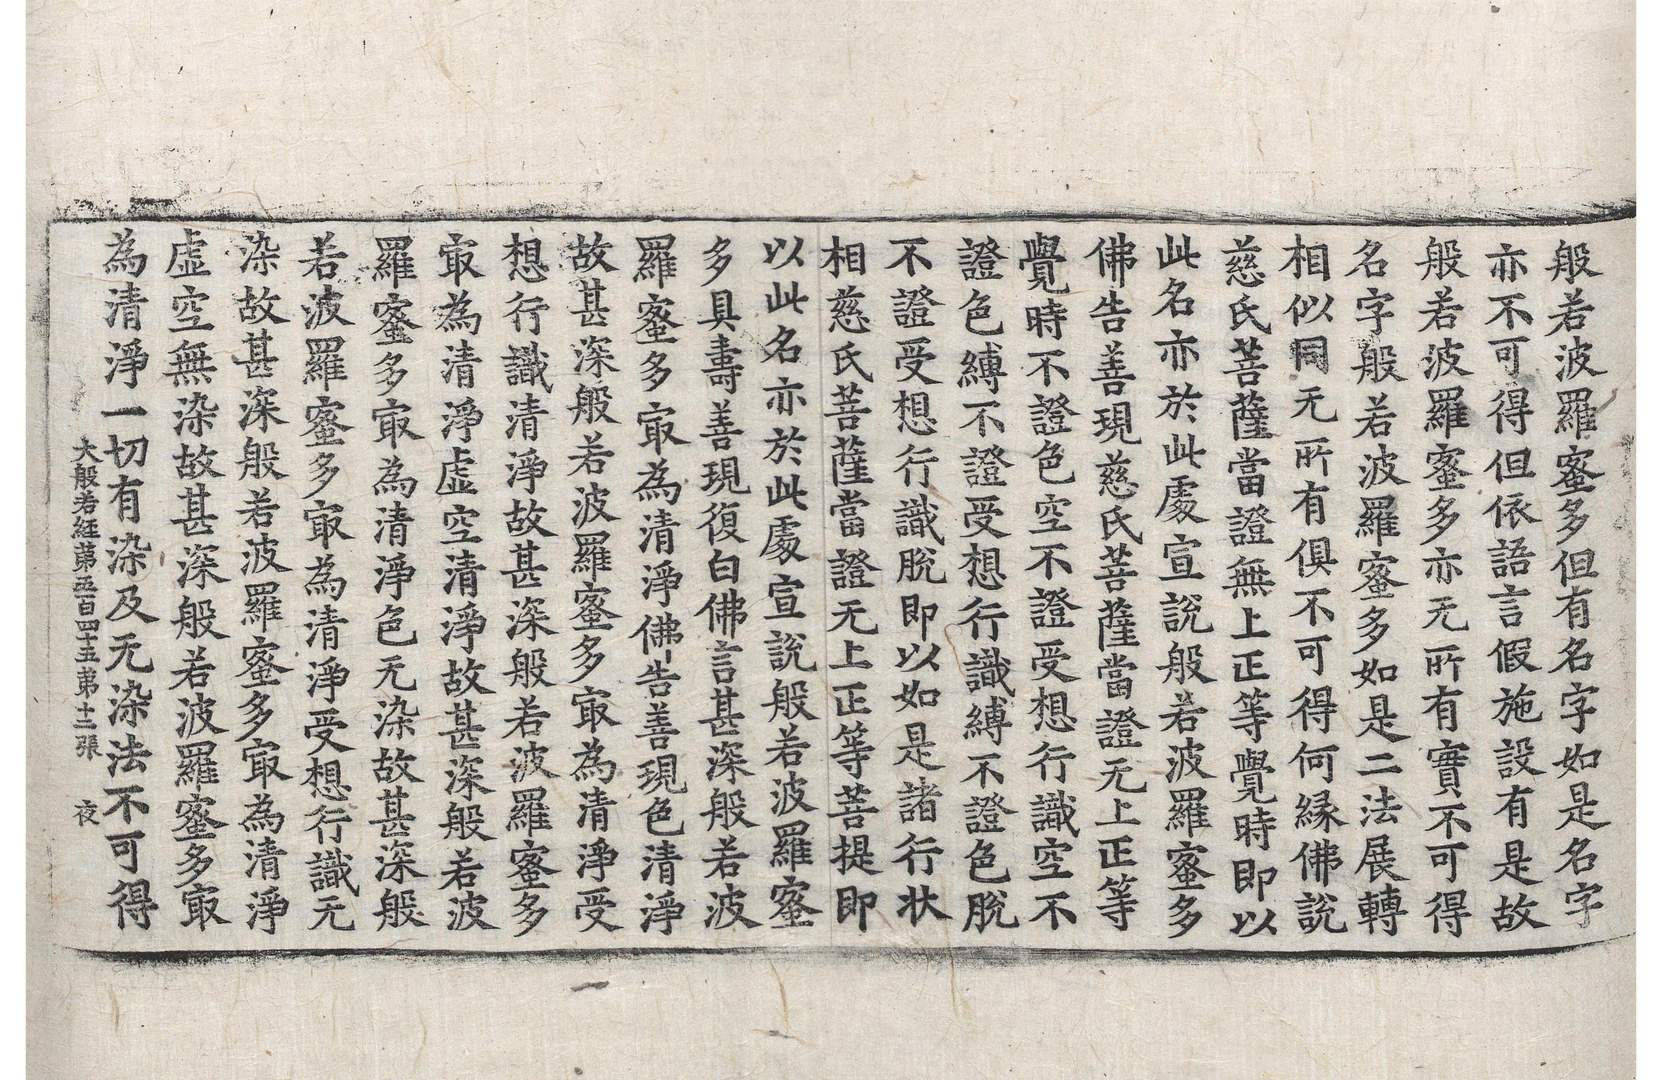 般若波羅蜜多但有名字如是名字
亦不可得但依語言假施設有是故
般若波羅蜜多亦无所有實不可得
名字般若波羅蜜多如是二法展轉
相似同无所有俱不可得何縁佛說
慈氏菩薩當證無上正等覺時即以
此名亦於此處宣說般若波羅蜜多
佛告善現慈氏菩薩當證无上正等
覺時不證色空不證受想行識空不
證色縛不證受想行識縛不證色脫
不證受想行識脫即以如是諸行狀
相慈氏菩薩當證无上正等菩提即
以此名亦於此處宣說般若波羅蜜
多具壽善現復白佛言甚深般若波
羅蜜多㝡為清淨佛告善現色清淨
故甚深般若波羅蜜多㝡為清淨受
想行識清淨故甚深般若波羅蜜多
㝡為清淨虛空清淨故甚深般若波
羅蜜多㝡為清淨色无染故甚深般
若波羅蜜多㝡為清淨受想行識无
染故甚深般若波羅蜜多㝡為清淨
虛空無染故甚深般若波羅蜜多㝡
為清淨一切有染及无染法不可得
大般若經苐五百四十五苐十二張 夜